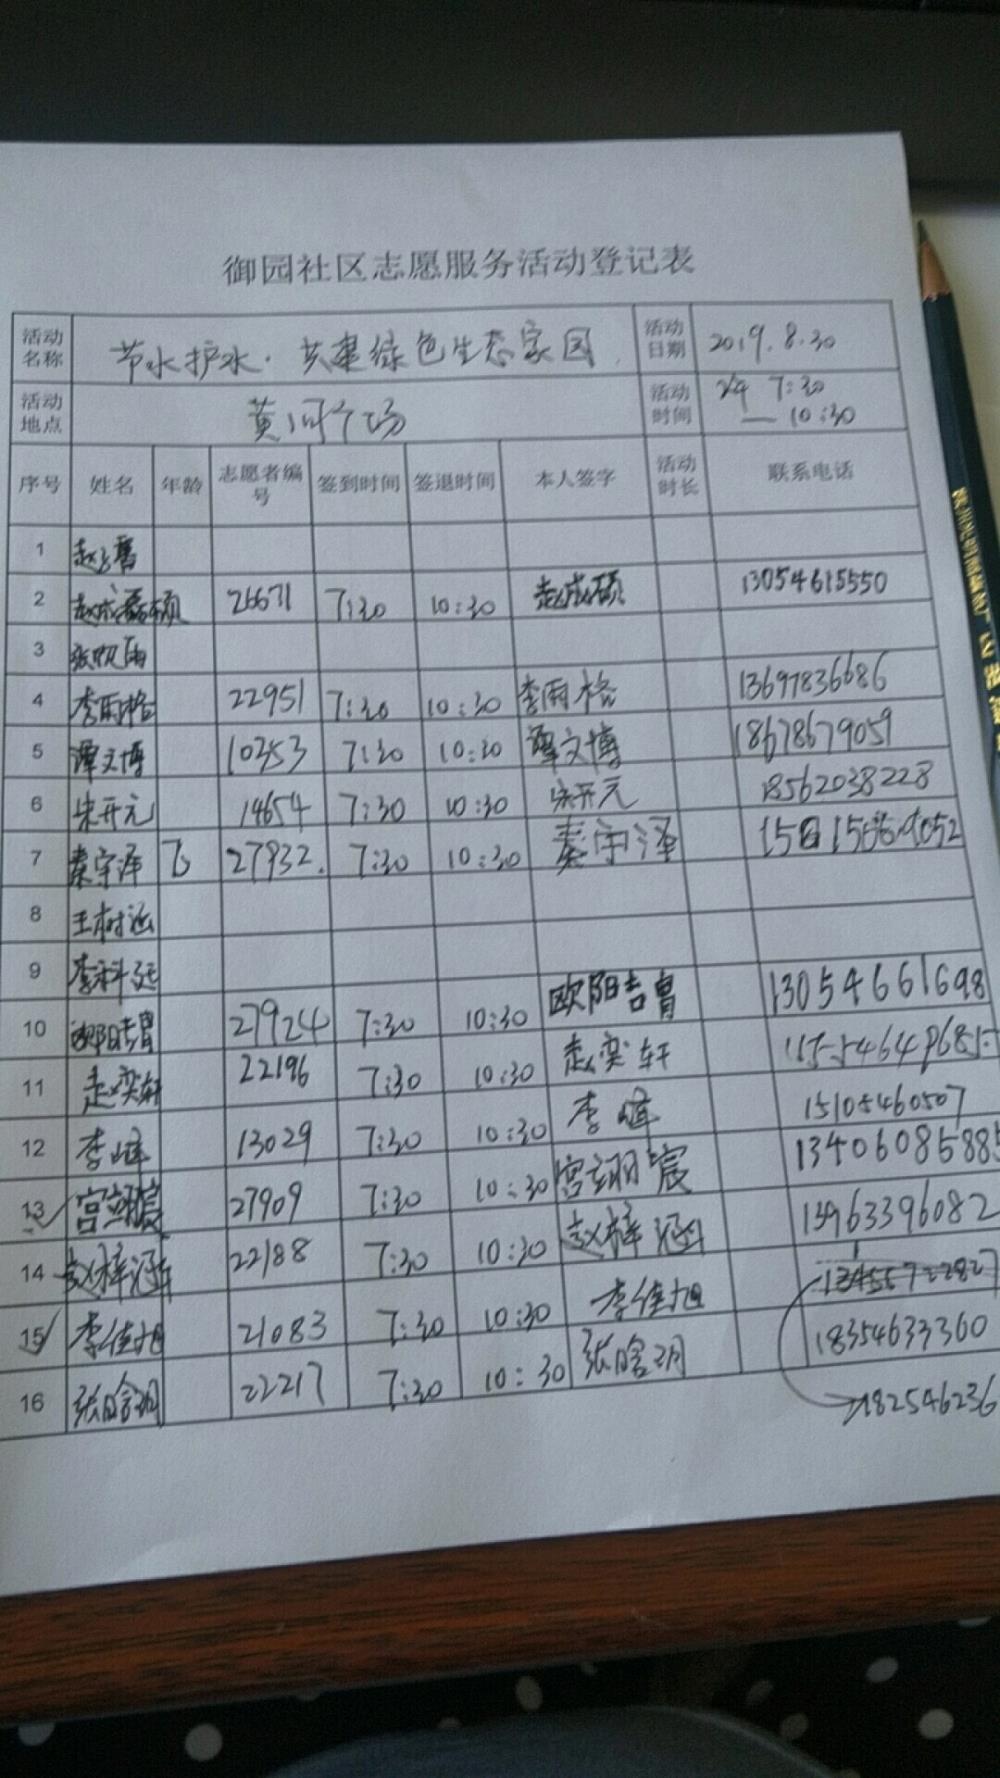 御园社区志愿服务活动登记表
活动名称 节水护水·共建绿色生态家园 活动日期 2019.8.30
活动地点 黄河广场 活动时间 7:30 — 10:30
序号 姓名 年龄 志愿者编号 签到时间 签退时间 本人签字 活动时长 联系电话
1
2 赵成硕 26671 7:30 10:30 赵成硕 13054615550
3
4 李雨格 22951 7:30 10:30 李雨格 13697836686
5 谭文博 10353 7:30 10:30 谭文博 18678679059
6 宋开元 14654 7:30 10:30 宋开元 18562038228
7 秦宇泽 27932. 7:30 10:30 秦宇泽
8 王树涵
9 李科廷
10 欧阳吉胄 27924 7:30 10:30 欧阳吉胄 13054661698
11 赵奕轩 22196 7:30 10:30 赵奕轩
12 李峰 13029 7:30 10:30 李峰 15105460507
13 宫翊宸 27909 7:30 10:30 宫翊宸 13406085885
14 赵梓涵 22188 7:30 10:30 赵梓涵 13963396082
15 李佳旭 21083 7:30 10:30 李佳旭
16 张晗玥 22217 7:30 10:30 张晗玥 18354633360
182546236